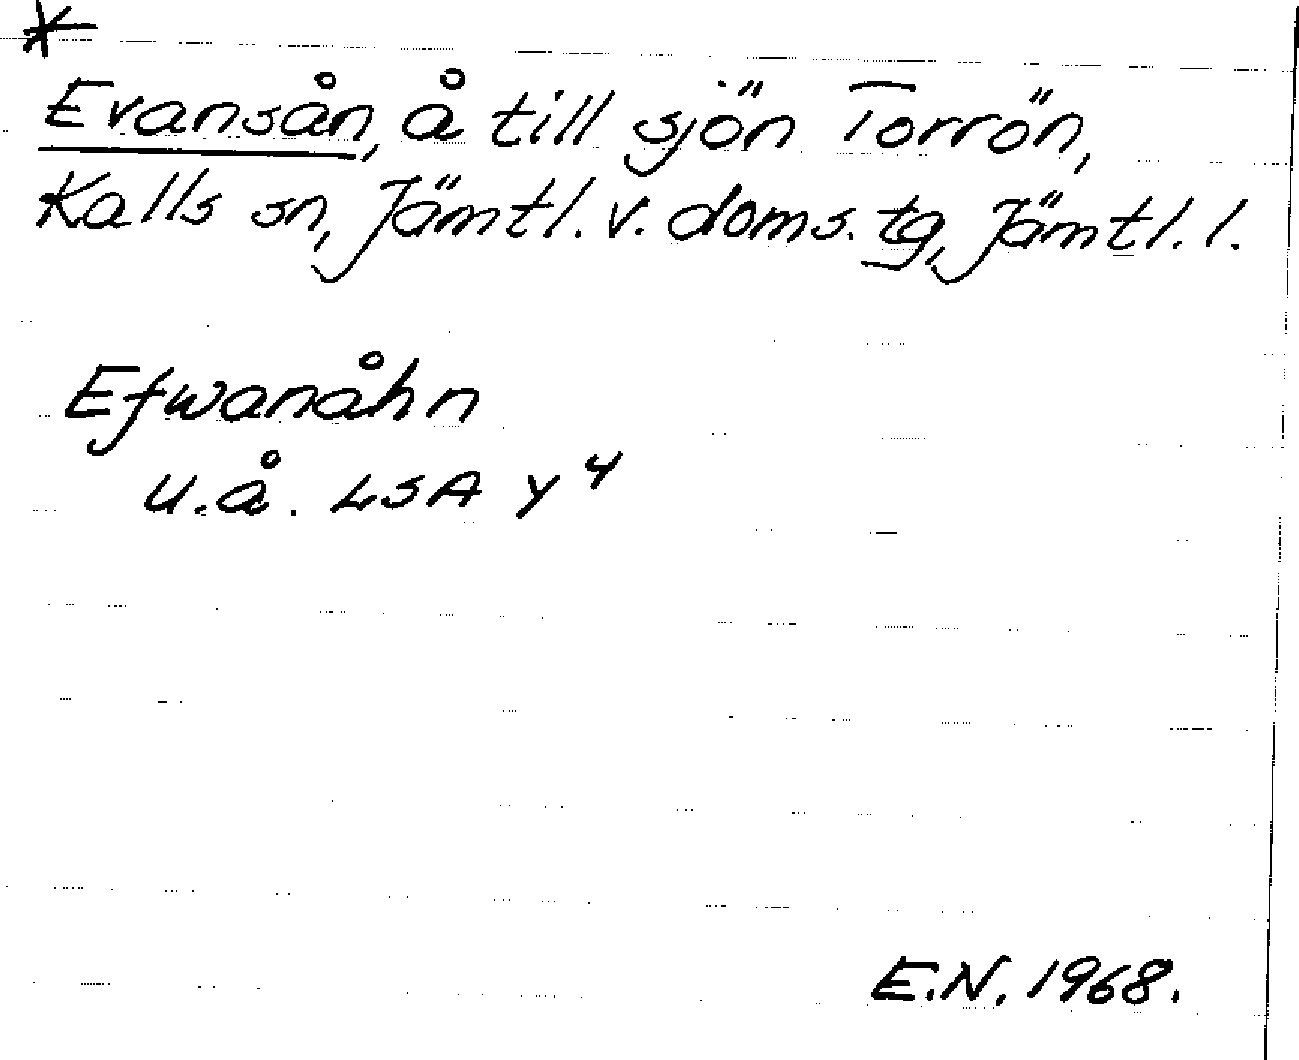 *
Evansån, å till sjön Torrön,
Kalls sn, Jämtl. v. doms. tg, Jämtl. l.
Efwanåhn
u.å. LSA Y 4
E.N. 1968.